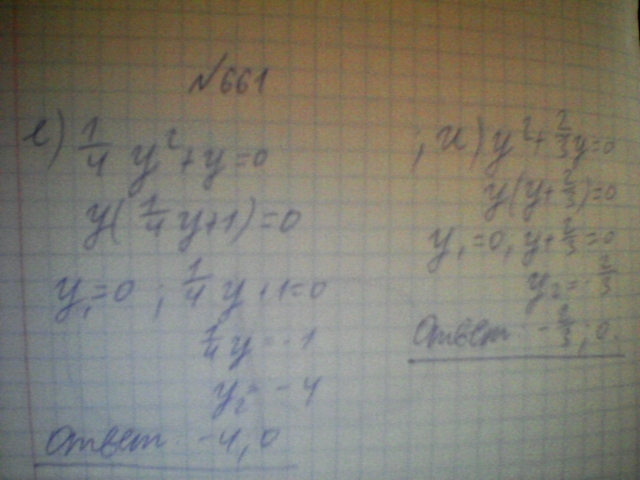 №661
е) 1/4 y² + y = 0
y(1/4 y + 1) = 0
y₁ = 0 ; 1/4 y + 1 = 0
1/4 y = -1
y₂ = -4
Ответ: -4; 0
; и) y² + 2/3 y = 0
y(y + 2/3) = 0
y₁ = 0, y + 2/3 = 0
y₂ = -2/3
Ответ: -2/3; 0.